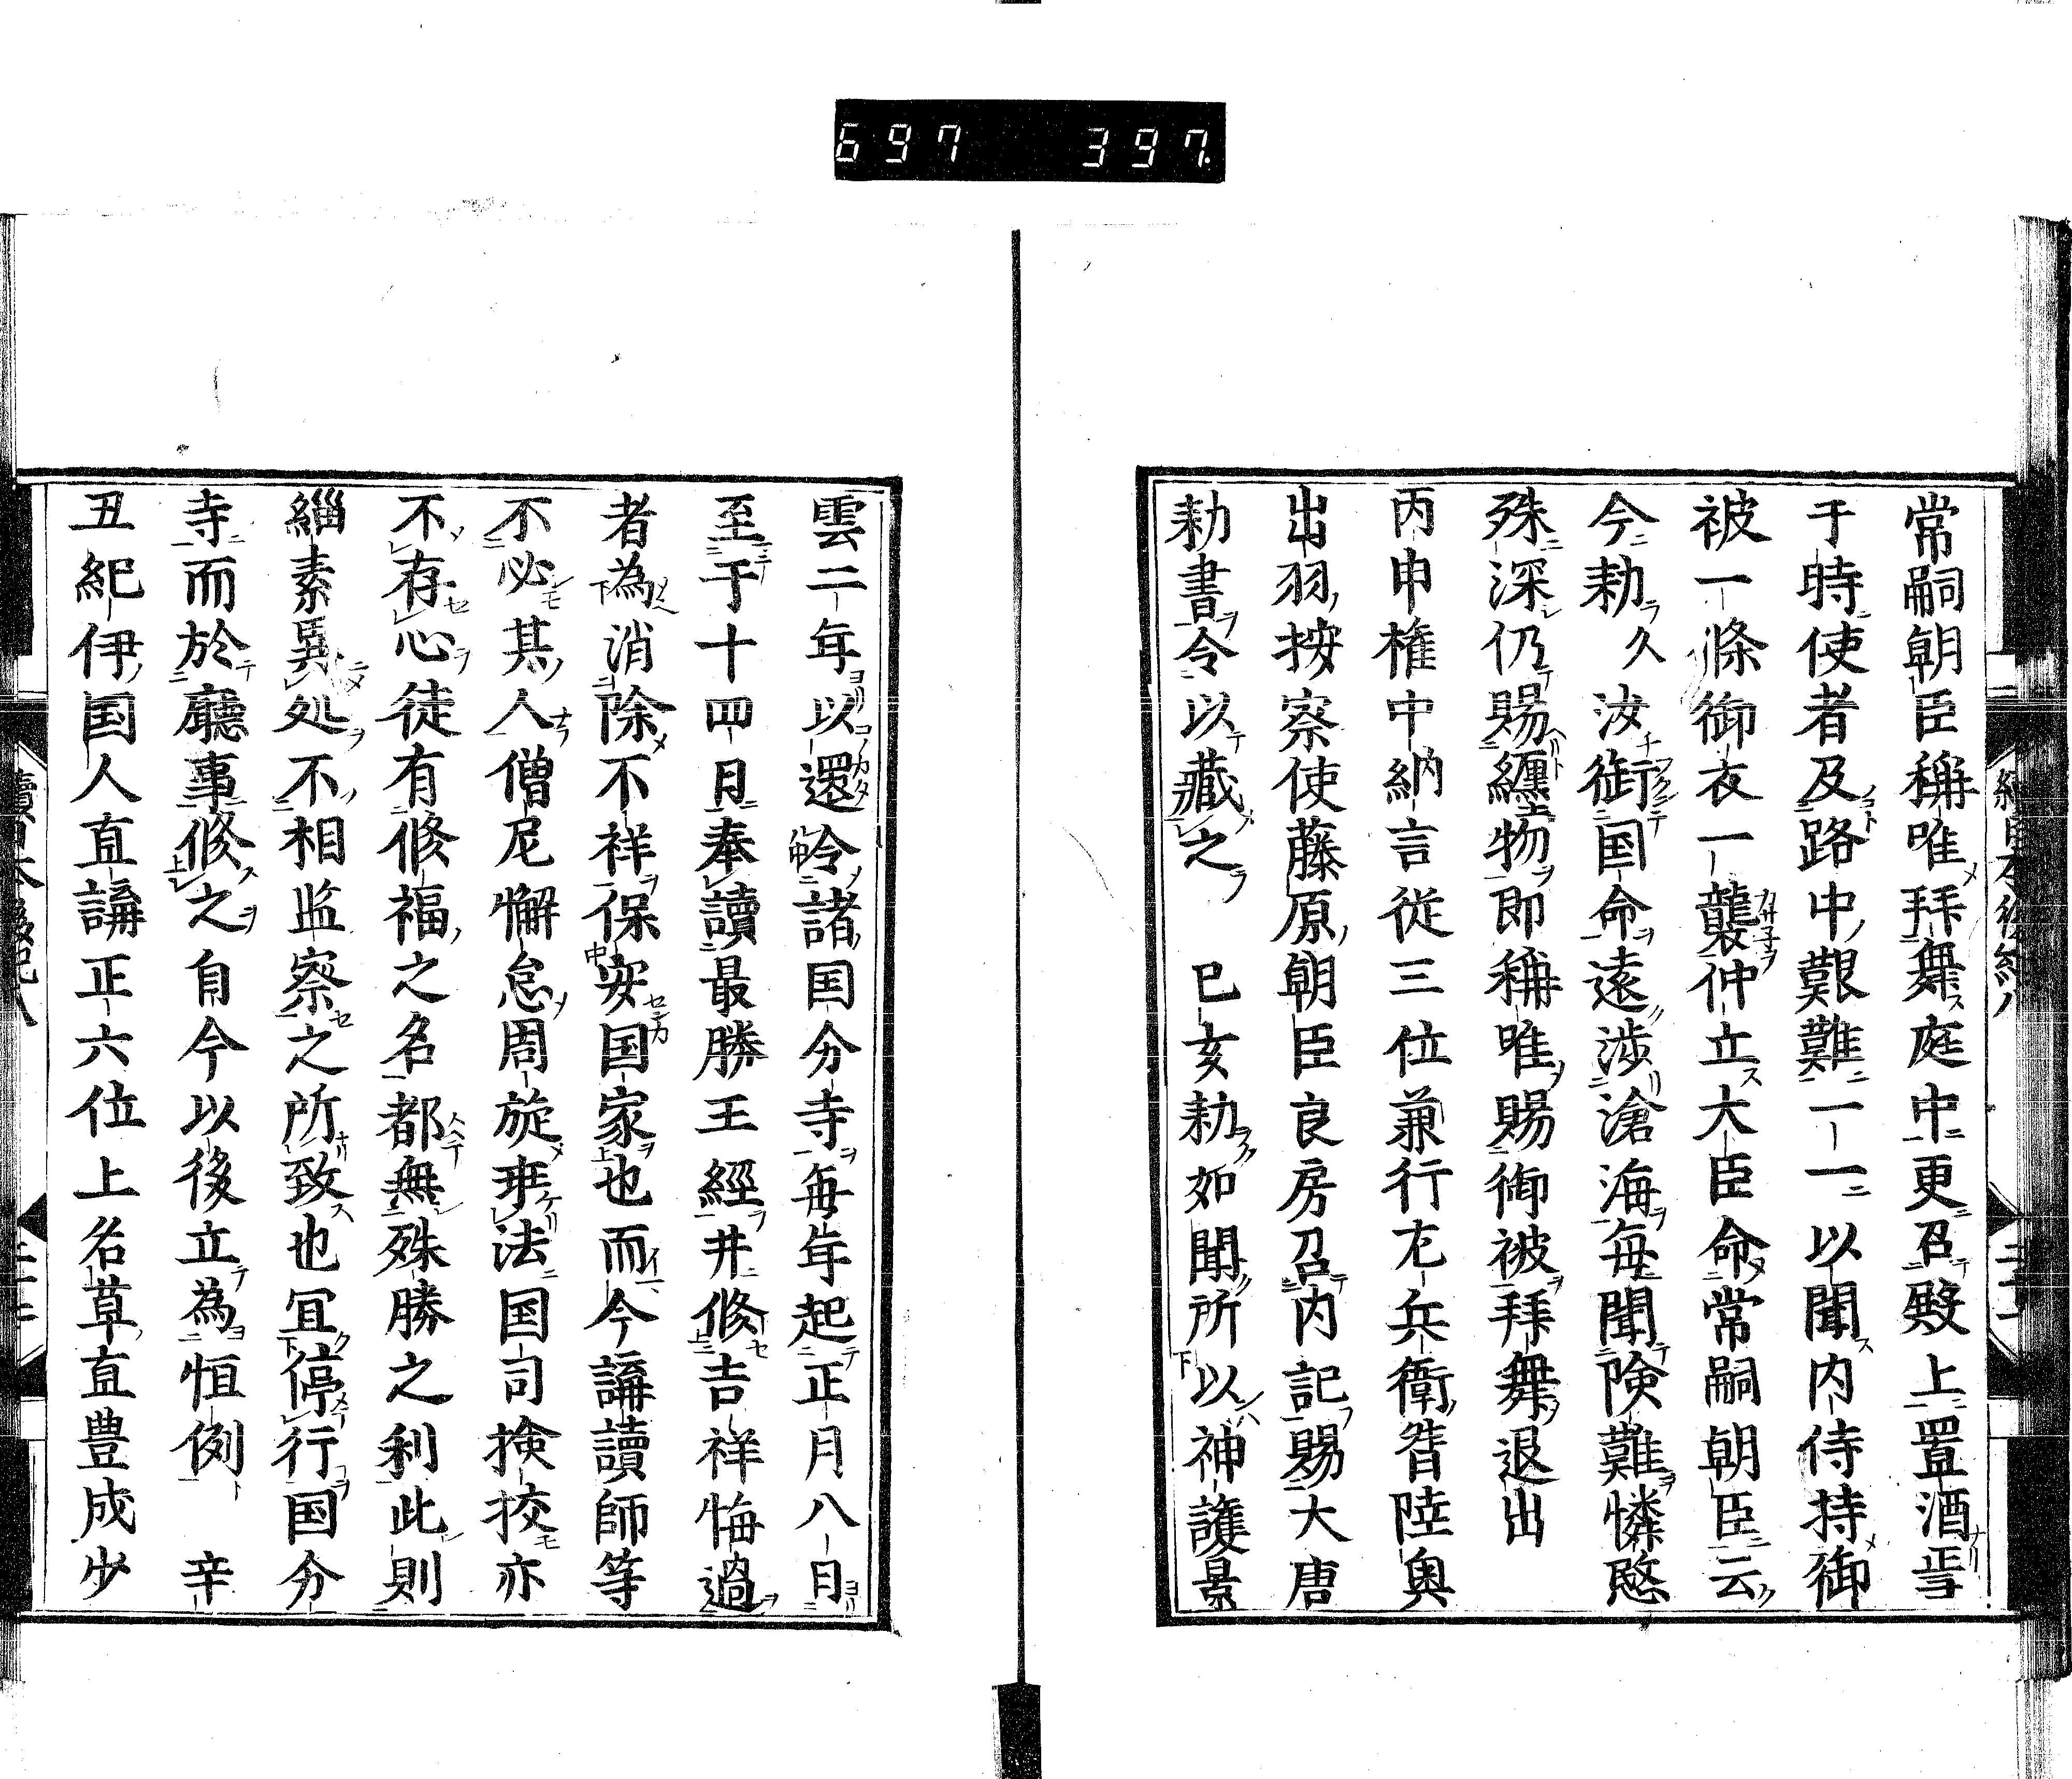 697 397.
常嗣朝臣稱唯拜舞庭中更召殿上置酒焉
于時使者及路中艱難一一以聞内侍持御
被一條御衣一襲仲立大臣命常嗣朝臣云
今勅久汝銜国命遠渉滄海毎聞険難憐愍
殊深仍賜纏物即稱唯賜御被拜舞退出
丙申權中納言従三位兼行左兵衛督陸奥
出羽按察使藤原朝臣良房召内記賜大唐
勅書令以藏之 已亥勅如聞所以神護景
雲二年以還令諸国分寺毎年起正月八日
至于十四日奉讀最勝王經并修吉祥悔過
者為消除不祥保安国家也而今講讀師等
不必其人僧尼懈怠周旋乖法国司検挍亦
不存心徒有修福之名都無殊勝之利此則
緇素異処不相監察之所致也冝停行国分
寺而於廳事修之自今以後立為恒例 辛
丑紀伊国人直講正六位上名草直豊成少